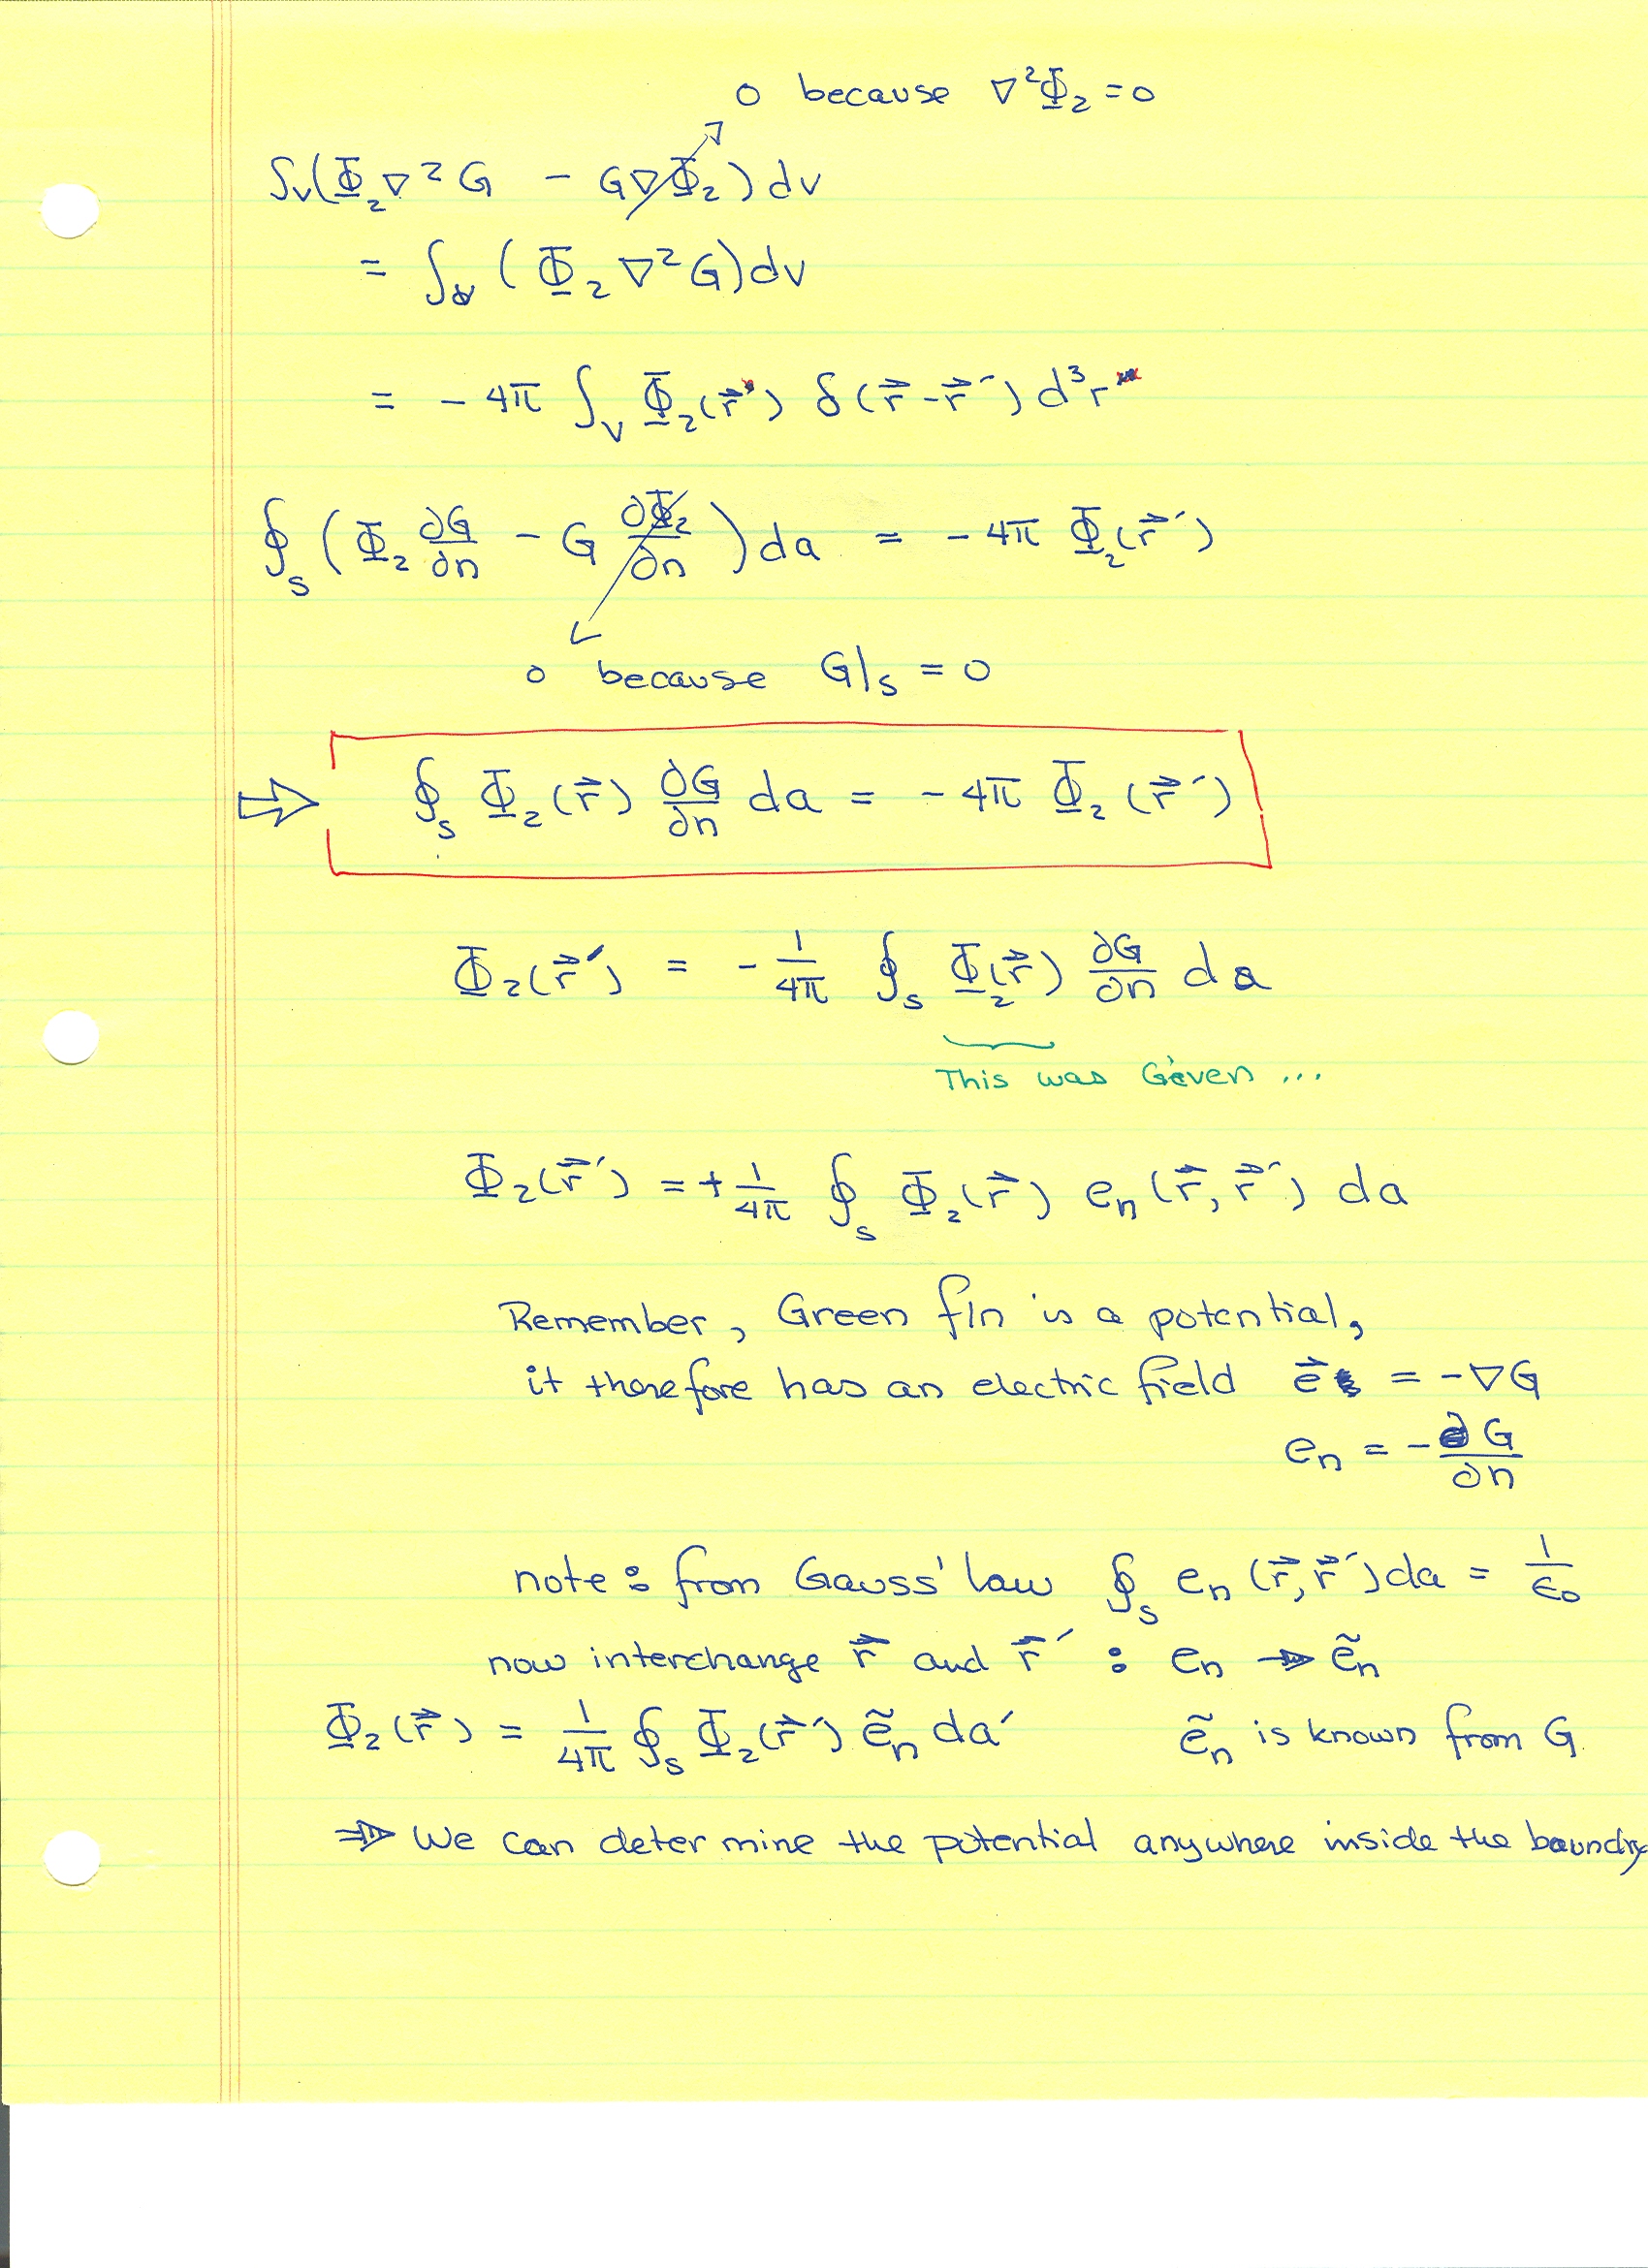 0 because ∇²Φ₂ = 0
∫ᵥ(Φ₂∇²G − G∇Φ₂)dv
= ∫ᵥ(Φ₂∇²G)dv
= −4π ∫ᵥ Φ₂(r⃗) δ(r⃗−r⃗′) d³r
∮ₛ(Φ₂ ∂G/∂n − G ∂Φ₂/∂n)da = −4π Φ₂(r⃗′)
0 because G|ₛ = 0
⇒ ∮ₛ Φ₂(r⃗) ∂G/∂n da = −4π Φ₂(r⃗′)
Φ₂(r⃗′) = −1/4π ∮ₛ Φ₂(r⃗) ∂G/∂n da
This was Given ...
Φ₂(r⃗′) = +1/4π ∮ₛ Φ₂(r⃗) eₙ(r⃗, r⃗′) da
Remember, Green f/n is a potential,
it therefore has an electric field e⃗ = −∇G
eₙ = −∂G/∂n
note: from Gauss' law ∮ₛ eₙ(r⃗, r⃗′)da = 1/ε₀
now interchange r⃗ and r⃗′ : eₙ → ẽₙ
Φ₂(r⃗) = 1/4π ∮ₛ Φ₂(r⃗′) ẽₙ da′ ẽₙ is known from G
⇒ We can determine the potential anywhere inside the boundry